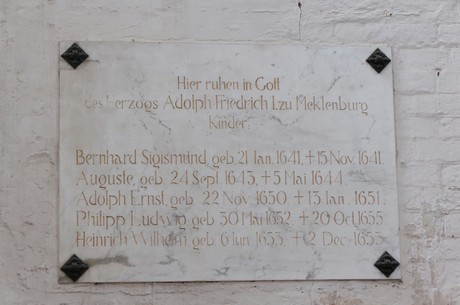 Hier ruhen in Gott
des Herzogs Adolph Friedrich I. zu Meklenburg
Kinder.
Bernhard Sigismund, geb. 21 Jan. 1641, + 15 Nov. 1641.
Auguste, geb. 24 Sept. 1643, + 5 Mai 1644.
Adolph Ernst, geb. 22 Nov. 1650, + 13 Jan. 1651.
Philipp Ludwig, geb. 30 Mai 1652, + 20 Oct. 1655
Heinrich Wilhelm, geb. 6 Jun. 1653, Dec. 1653.